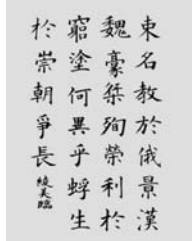 束名教於俄景漢
魏豪桀殉榮利於
窮塗何異乎蜉生
於崇朝爭長
臨